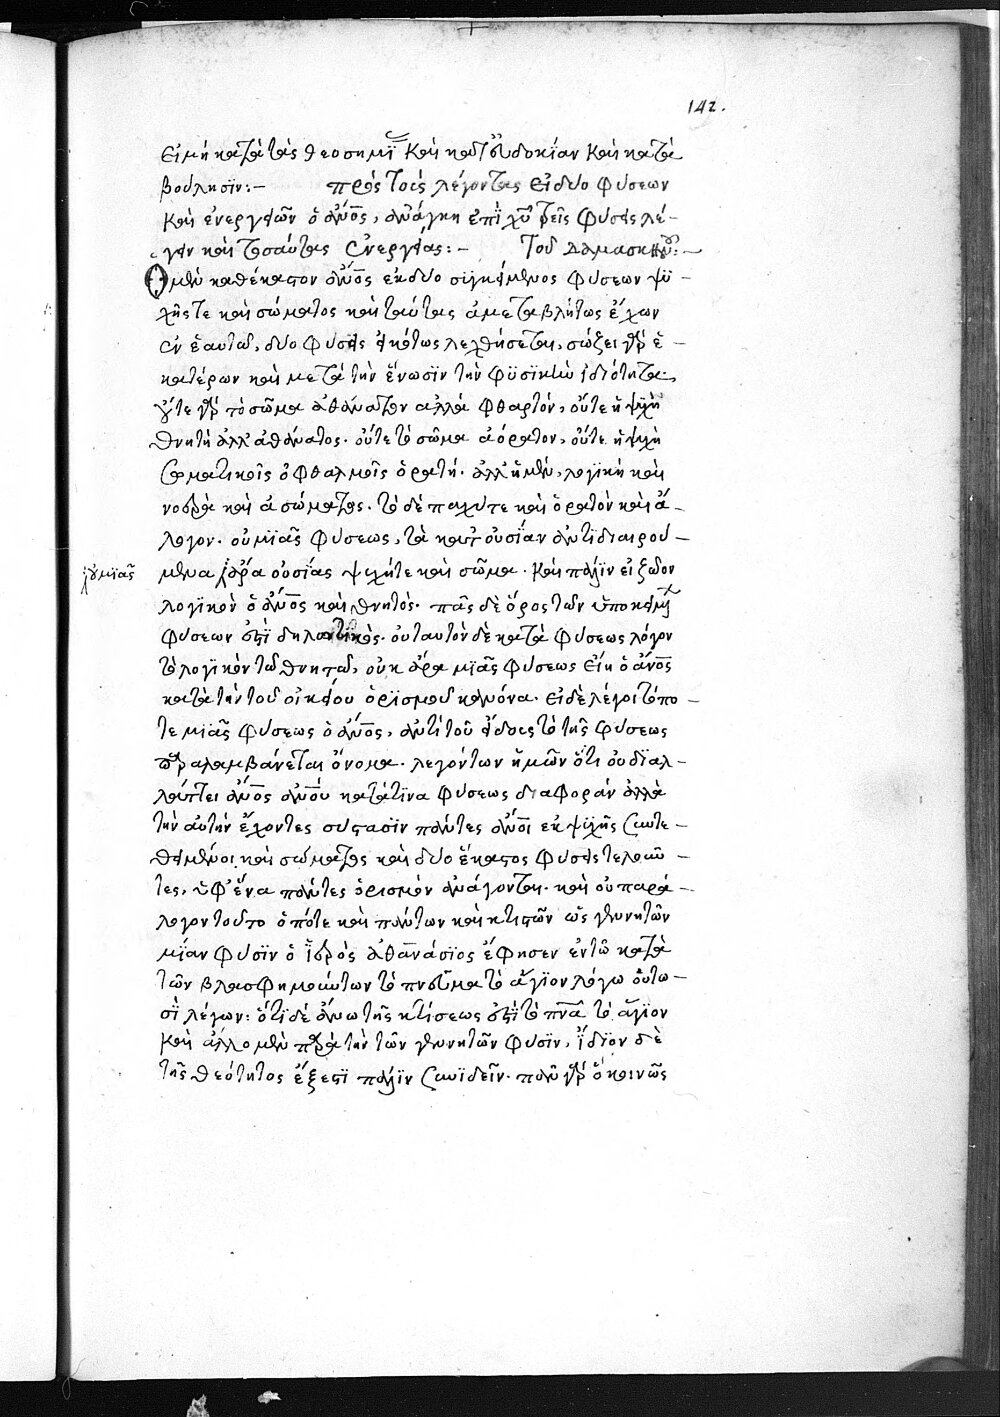 142.
εἰ μὴ κατὰ τὰς θεοσημί καὶ κατ' εὐδοκίαν καὶ κατὰ
βούλησϊν:— πρὸς τοὺς λέγοντας εἰ δύο φύσεων
καὶ ἐνεργειῶν ὁ ἄνο̅ς, ἀνάγκη ἐπὶ χῦ τρεῖς φύσεις λέ-
γειν καὶ τοσαύτας ἐνεργείας:— Τοῦ Δαμασκηνοῦ:—
Ὁ μὲν καθέκαστον ἄνο̅ς ἐκ δύο συγκείμενος φύσεων ψυ-
χῆς τε καὶ σώματος καὶ ταύτας ἀμεταβλήτως ἔχων
ἐν ἑαυτῶ, δύο φύσεις εἰκότως λεχθήσεται, σώζει γὰρ ἑ-
κατέρων καὶ μετὰ τὴν ἕνωσϊν τὴν φϋσϊκὴν ἰδιότητα·
οὔτε γὰρ τὸ σῶμα ἀθάνατον ἀλλὰ φθαρτόν, οὔτε ἡ ψυχὴ
θνητὴ ἀλλ' ἀθάνατος. οὔτε τὸ σῶμα ἀόρατον, οὔτε ἡ ψυχὴ
σωματικοῖς ὀφθαλμοῖς ὁρατή. ἀλλ' ἡ μὲν, λογϊκὴ καὶ
νοερὰ καὶ ἀσώματος. τὸ δὲ παχύ τε καὶ ὁρατὸν καὶ ἄ-
λογον. οὐ μϊᾶς φύσεως, τὰ κατ' οὐσΐαν ἀντιδιαιρού-
μενα ἄρα οὐσίας ψυχή τε καὶ σῶμα. καὶ πάλϊν εἰ ζῶον
οὐ μϊᾶς
λογϊκὸν ὁ ἄνο̅ς καὶ θνητός. πᾶς δὲ ὅρος τῶν ὑποκειμέ
φύσεων ἐστὶ δηλωτϊκός. οὐ ταυτὸν δὲ κατὰ φύσεως λόγον
τὸ λογϊκὸν τῶ θνητῶ, οὐκ ἄρα μϊᾶς φύσεως εἴη ὁ ἄνο̅ς
κατὰ τὴν τοῦ οἰκείου ὁρϊσμοῦ κανόνα. εἰ δὲ λέγοιτό πο-
τε μϊᾶς φύσεως ὁ ἄνο̅ς, ἀντὶ τοῦ εἴδους τὸ τῆς φύσεως
παραλαμβάνεται ὄνομα. λεγόντων ἡμῶν ὅτι οὐ διαλ-
λάττει ἄνο̅ς ἀνο̅υ κατά τϊνα φύσεως διαφορὰν ἀλλὰ
τὴν αὐτὴν ἔχοντες σύστασϊν πάντες ἄνο̅ι ἐκ ψϋχῆς συντε-
θειμένοι καὶ σώματος καὶ δύο ἕκαστος φύσεις τελοῦν-
τες, ὑφ' ἕνα πάντες ὁρισμὸν ἀνάγονται. καὶ οὐ παρά-
λογον τοῦτο ὁπότε καὶ πάντων καὶ κτιστῶν ὡς γενητῶν
μΐαν φύσϊν ὁ ἱερὸς ἀθανάσϊος ἔφησεν ἐν τῶ κατὰ
τῶν βλασφημούντων τὸ πνεῦμα τὸ ἅγϊον λόγω οὕτω-
σὶ λέγων: ὅτϊ δὲ ἄνω τῆς κτίσεως ἐστὶ τὸ πν̅α τὸ ἅγϊον
καὶ ἄλλο μὲν παρὰ τὴν τῶν γενητῶν φύσϊν, ἴδϊον δὲ
τῆς θεότητος ἔξεστϊ πάλϊν συνϊδεῖν. πᾶν γὰρ ὃ κοινῶς